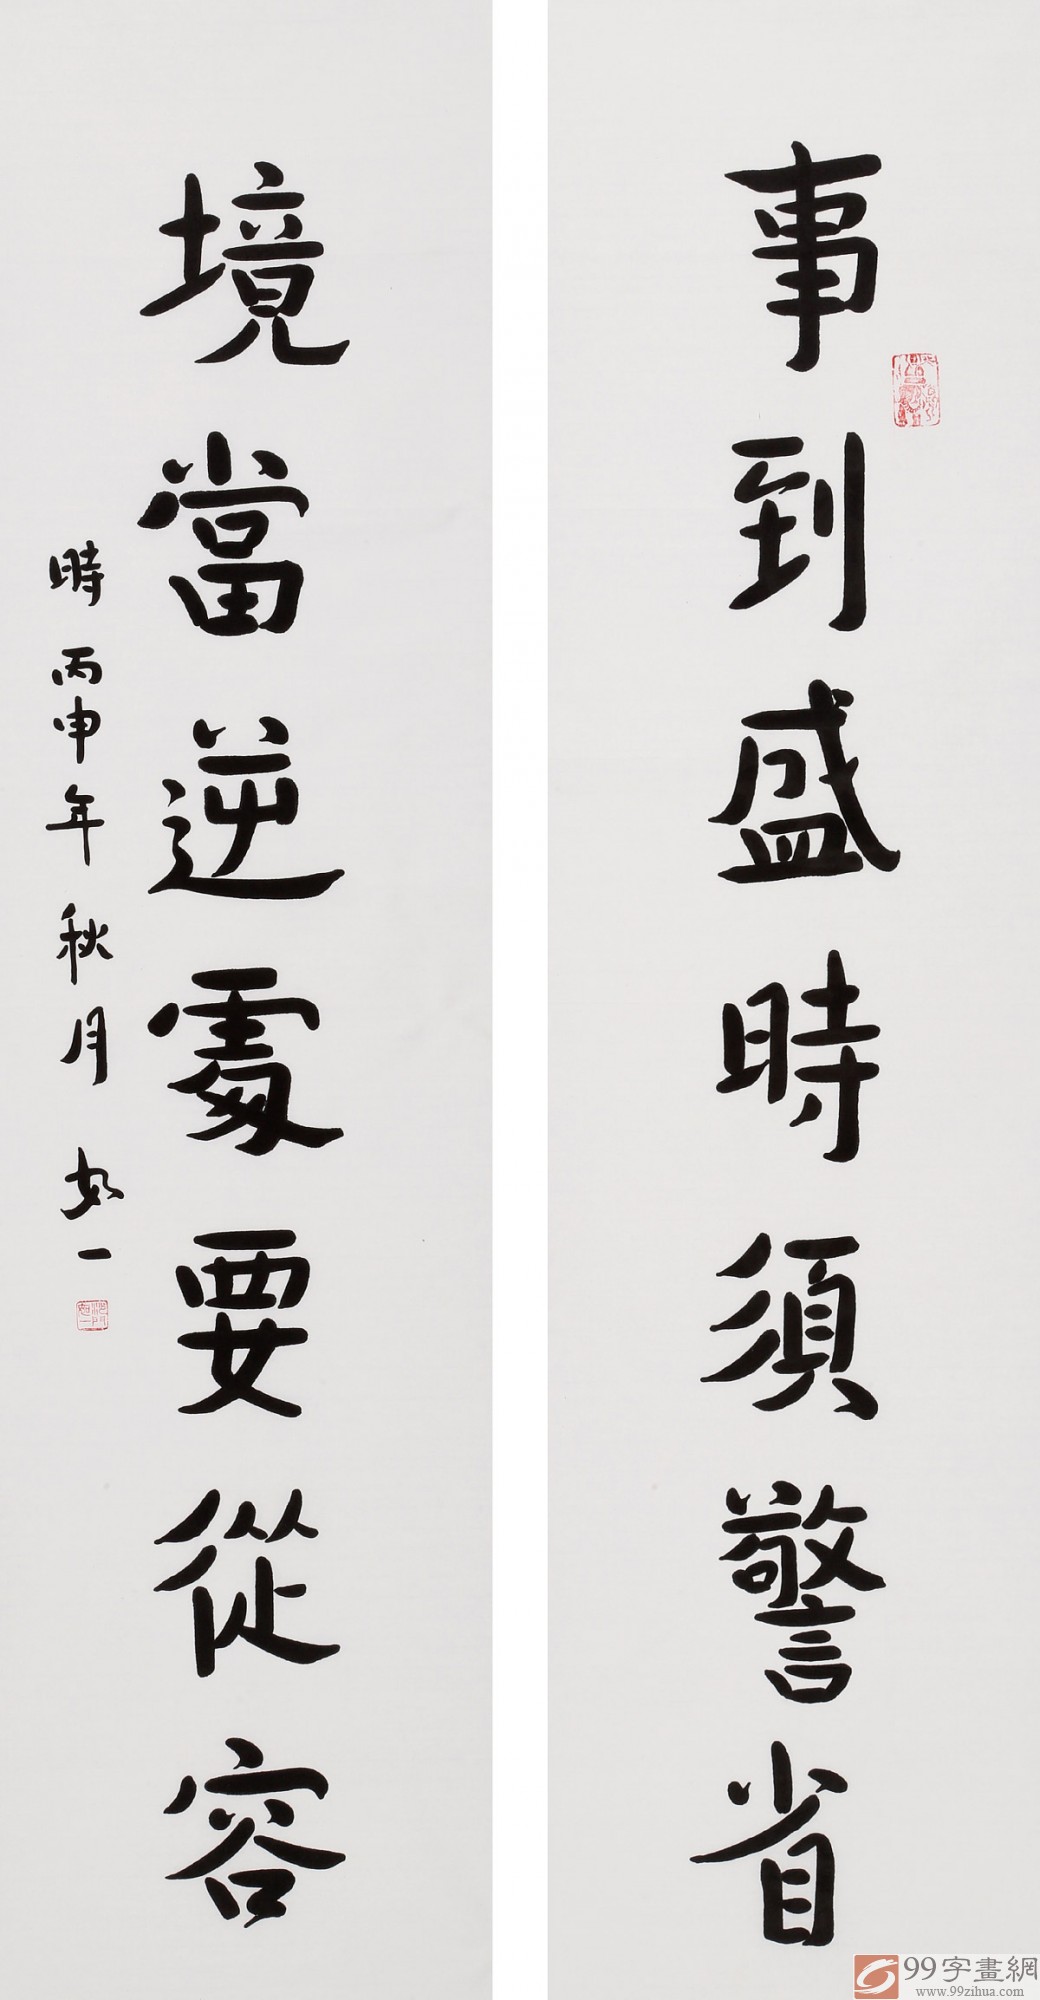 事到盛時須警省
境當逆處要從容
時丙申年秋月如一
99字畫網
www.99zihua.com